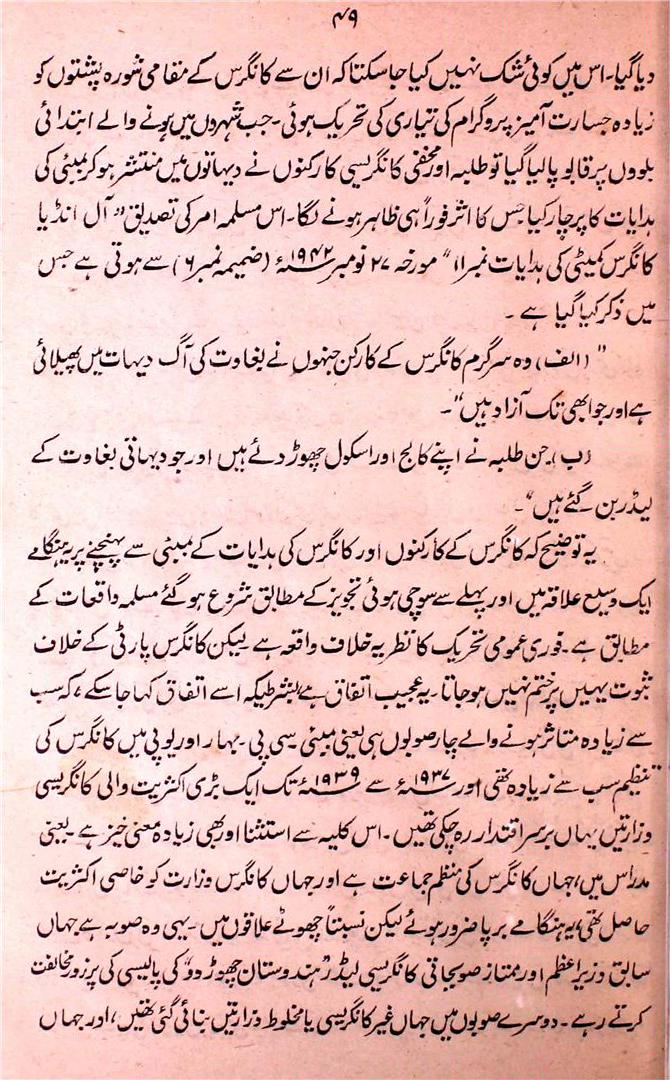 ۴۹
دیا گیا۔ اس میں کوئی شک نہیں کیا جا سکتا کہ ان سے کانگرس کے مقامی شورہ پشتوں کو
زیادہ جسارت آمیز پروگرام کی تیاری کی تحریک ہوئی۔ جب شہروں میں ہونے والے ابتدائی
بلووں پر قابو پا لیا گیا تو طلبہ اور مخفی کانگریسی کارکنوں نے دیہاتوں میں منتشر ہو کر بمبئی کی
ہدایات کا پرچار کیا جس کا اثر فوراً ہی ظاہر ہونے لگا۔ اس مسلمہ امر کی تصدیق "آل انڈیا
کانگرس کمیٹی کی ہدایات نمبر ۱۱" مورخہ ۲۷ نومبر ۱۹۴۲ء (ضمیمہ نمبر ۶) سے ہوتی ہے جس
میں ذکر کیا گیا ہے۔
"(الف) وہ سرگرم کانگرس کے کارکن جنہوں نے بغاوت کی آگ دیہات میں پھیلائی
ہے اور جو ابھی تک آزاد ہیں"۔
(ب) جن طلبہ نے اپنے کالج اور اسکول چھوڑ دئے ہیں اور جو دیہاتی بغاوت کے
لیڈر بن گئے ہیں"۔
یہ توضیح کہ کانگرس کے کارکنوں اور کانگرس کی ہدایات کے بمبئی سے پہنچنے پر یہ ہنگامے
ایک وسیع علاقہ میں اور پہلے سے سوچی ہوئی تجویز کے مطابق شروع ہو گئے مسلمہ واقعات کے
مطابق ہے۔ فوری عمومی تحریک کا نظریہ خلاف واقعہ ہے لیکن کانگرس پارٹی کے خلاف
ثبوت یہیں پر ختم نہیں ہو جاتا۔ یہ عجیب اتفاق ہے، بشرطیکہ اسے اتفاق کہا جا سکے، کہ سب
سے زیادہ متاثر ہونے والے چار صوبوں ہی یعنی بمبئی۔ سی پی۔ بہار اور یو پی میں کانگرس کی
تنظیم سب سے زیادہ تھی اور ۱۹۳۷ء سے ۱۹۳۹ء تک ایک بڑی اکثریت والی کانگریسی
وزارتیں یہاں برسر اقتدار رہ چکی تھیں۔ اس کلیہ سے استثنا اور بھی زیادہ معنی خیز ہے۔ یعنی
مدراس میں، جہاں کانگرس کی منظم جماعت ہے اور جہاں کانگرس وزارت کو خاصی اکثریت
حاصل تھی، یہ ہنگامے برپا ضرور ہوئے لیکن نسبتاً چھوٹے علاقوں میں۔ یہی وہ صوبہ ہے جہاں
سابق وزیر اعظم اور ممتاز صوبجاتی کانگریسی لیڈر "ہندوستان چھوڑ دو" کی پالیسی کی پرزور مخالفت
کرتے رہے۔ دوسرے صوبوں میں جہاں غیر کانگریسی یا مخلوط وزارتیں بنائی گئی تھیں، اور جہاں